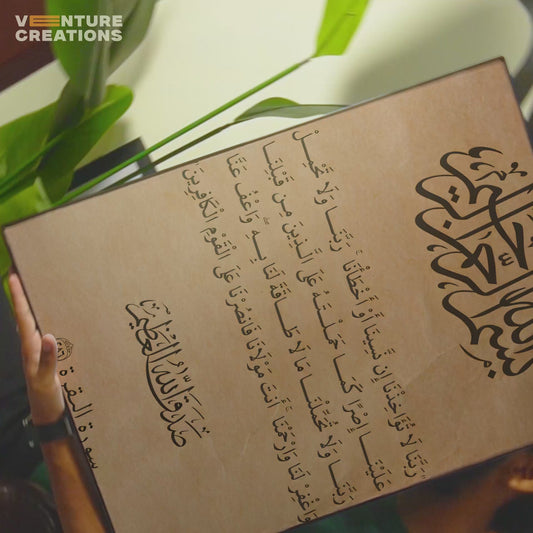 VENTURE
CREATIONS
بِسْمِ اللَّهِ الرَّحْمَٰنِ الرَّحِيمِ
رَبَّنَا لَا تُؤَاخِذْنَا إِن نَّسِينَا أَوْ أَخْطَأْنَا رَبَّنَا وَلَا تَحْمِلْ
عَلَيْنَا إِصْرًا كَمَا حَمَلْتَهُ عَلَى الَّذِينَ مِن قَبْلِنَا
رَبَّنَا وَلَا تُحَمِّلْنَا مَا لَا طَاقَةَ لَنَا بِهِ وَاعْفُ عَنَّا
وَاغْفِرْ لَنَا وَارْحَمْنَا أَنتَ مَوْلَانَا فَانصُرْنَا عَلَى الْقَوْمِ الْكَافِرِينَ
صَدَقَ اللَّهُ الْعَظِيمُ
سورة البقرة